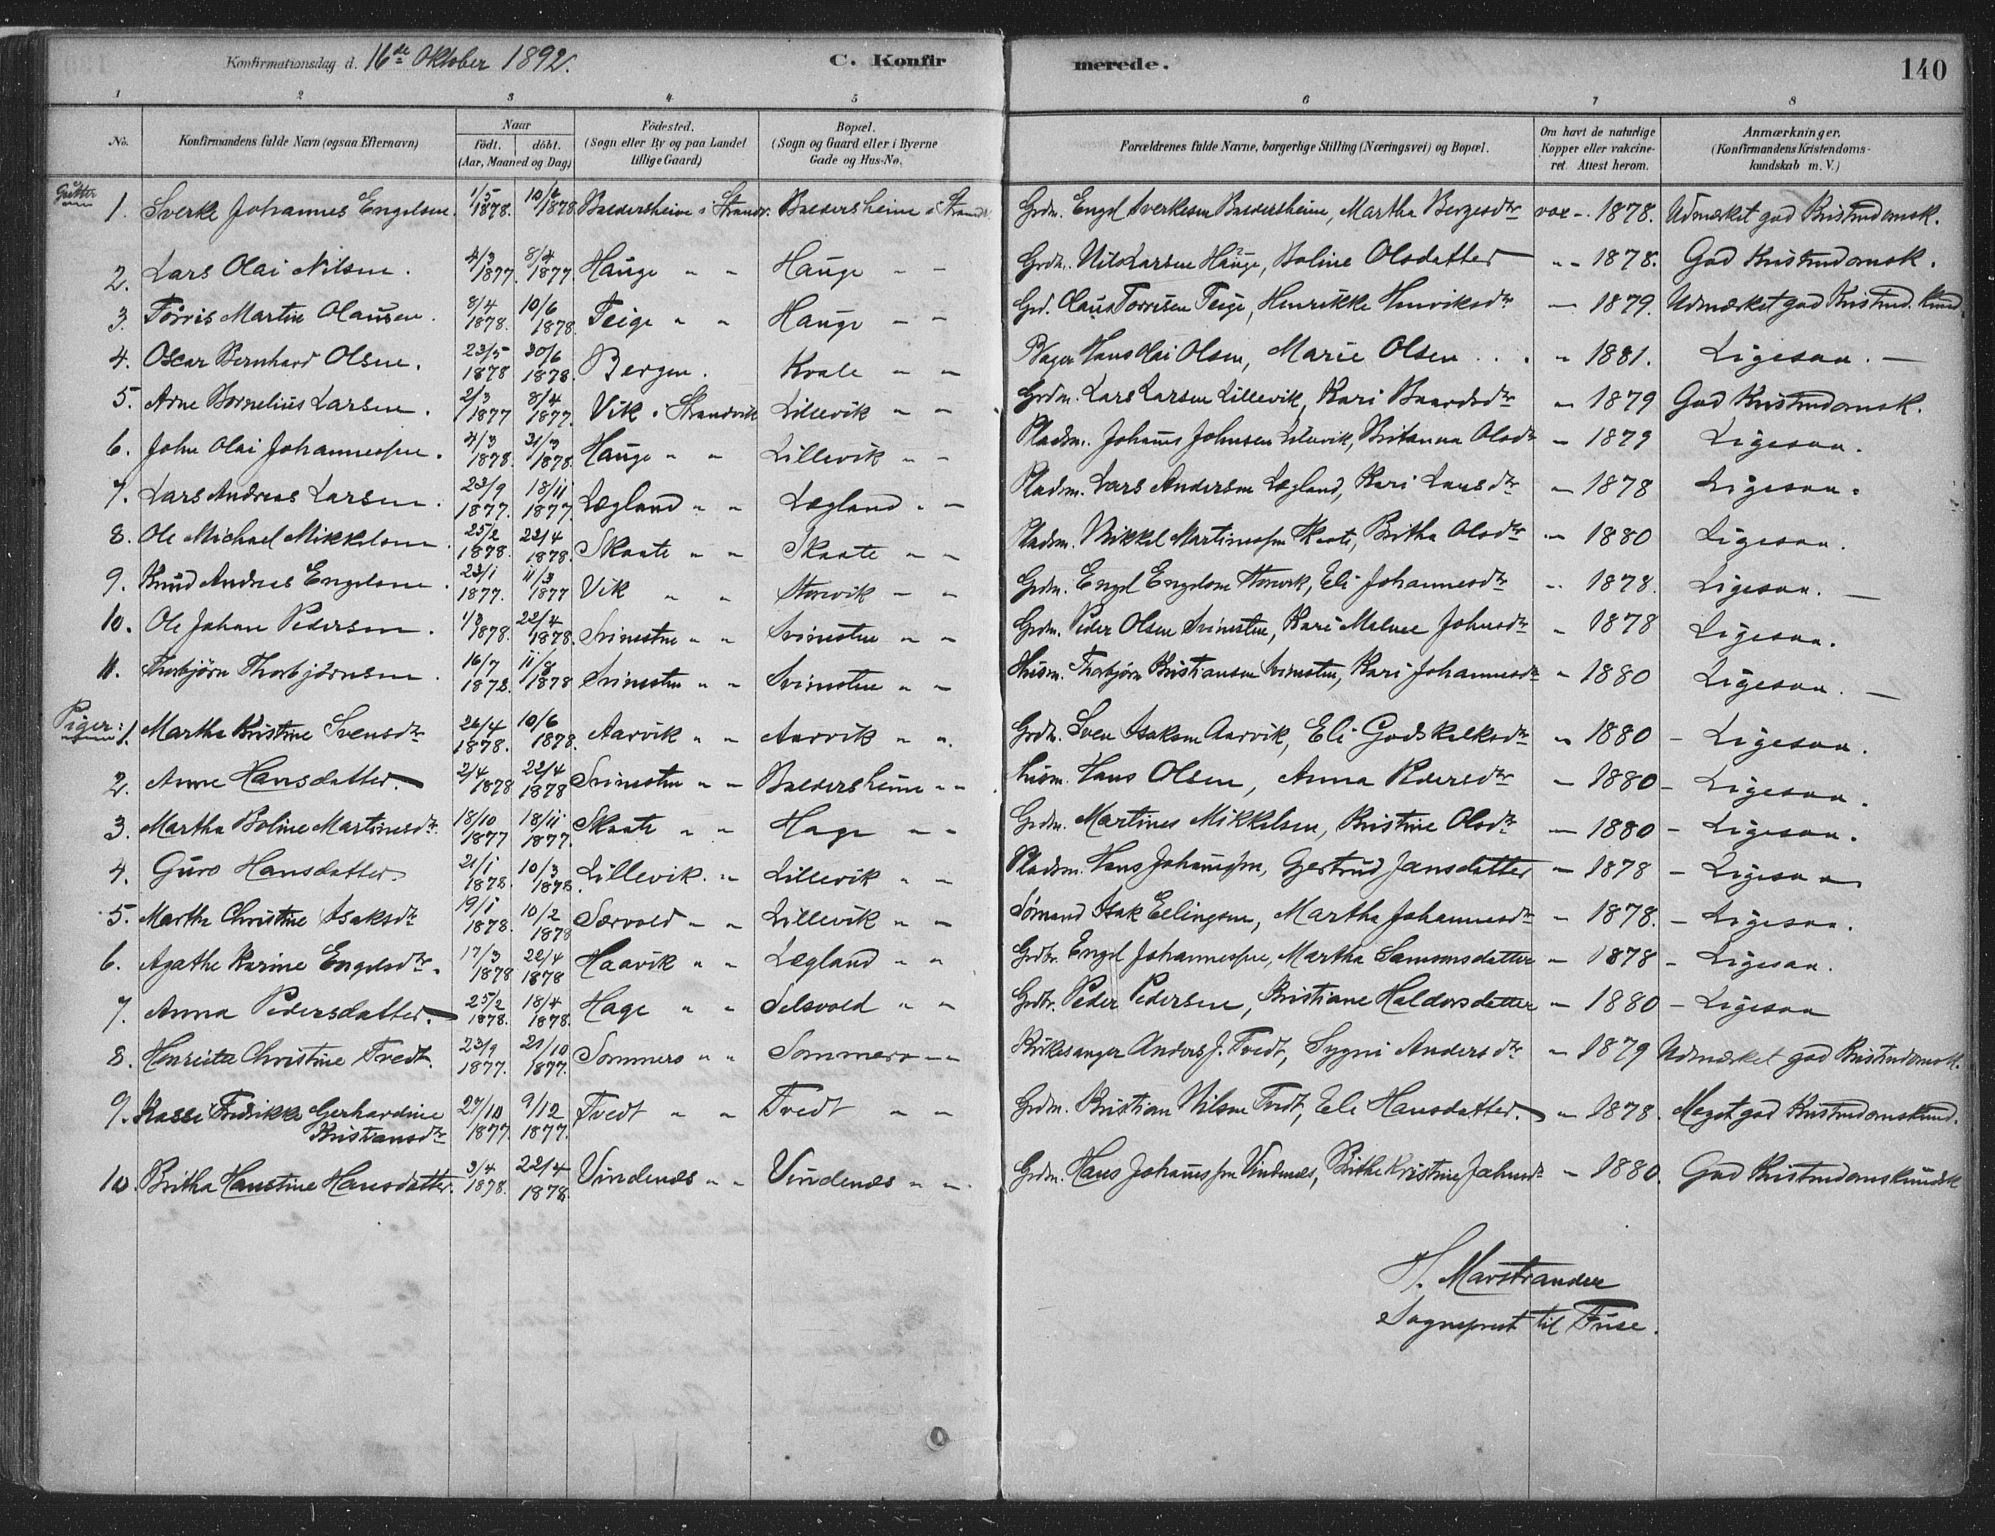 Konfirmationsdag d. 16de Oktober 1892. C. Konfirmerede. 140
1 2 3 4 5 6 7 8
No. Konfirmandens fulde Navn (ogsaa Efternavn) Naar født. døbt. (Aar, Maaned og Dag) Fødested. (Sogn eller By og paa Landet tillige Gaard) Bopæl. (Sogn og Gaard eller i Byerne Gade og Hus-No. Forældrenes fulde Navne, borgerlige Stilling (Næringsvei) og Bopæl. Om havt de naturlige Kopper eller vakcineret. Attest herom. Anmærkninger. (Konfirmandens Kristendomskundskab m. V.)
Gutter
1. Sverke Johannes Engelsen. 1/5 1878. 10/6 1878 Baldersheim i Strandv. Baldersheim i Strandv. Grdm. Engel Sverkesen Baldersheim, Martha Børgesdtr vac - 1878. Udmærket god Kristendomsk.
2. Lars Olai Nilsen. 4/3 1877. 8/4 1877. Hauge " " Hauge " " Grdm. Nils Larsen Hauge, Boline Olsdatter " - 1878. God Kristendomsk.
3. Tørris Martin Olausen. 8/4 1878. 10/6 1878. Teige " " Hauge " " Grd. Olaus Torrisen Teige, Henrikke Henriksdtr - 1879. Udmærket god Kristend. kund.
4. Oscar Bernhard Olsen. 23/5 1878 30/6 1878. Bergen. Kvale " " Bager Hans Olai Olsen, Marie Olsen . . . " 1881. Ligesaa. -
5. Arne Cornelius Larsen. 2/3 1877 8/4 1877. Vik i Strandvik Lillevik " " Grdm. Lars Larsen Lillevik, Kari Baardsdtr " 1879 God Kristendomsk.
6. John Olai Johannessen. 4/3 1878. 31/3 1878. Hauge " " Lillevik " " Pladsm. Johans Johnsen Lillevik, Britanna Olsdtr - 1879 Ligesaa.
7. Lars Andreas Larsen. 23/9 1877. 18/11 1877. Lægland " " Lægland " - Pladsm. Lars Andersen Lægland, Kari Larsdtr " 1878 Ligesaa.
8. Ole Michael Mikkelsen 25/2 1878. 22/4 1878. Skaate " " Skaate " " Pladsm. Mikkel Martinessen Skaate, Britha Olsdtr " 1880 Ligesaa.
9. Knud Andreas Engelsen. 23/1 1877. 11/3 1877 Vik " " Storevik " " Grdm. Engel Engelsen Storevik, Eli Johannesdtr " 1878. Ligesaa. -
10. Ole Johan Pedersen. 1/3 1878. 22/4 1878. Svinesten " " Svinesten " " Grdm. Peder Olsen Svinesten, Kari Malene Johnsdtr " 1878 Ligesaa.
11. Thorbjørn Thorbjørnsen. 16/7 1878. 11/8 1878 Svinesten " " Svinesten " " Husm. Thorbjørn Kristiansen Svinesten, Kari Johannesdtr " 1880 Ligesaa. -
Piger:
1. Martha Kristine Svensdtr 26/4 1878. 10/6 1878. Aarvik " " Aarvik " ". Grdm. Sven Isaksen Aarvik, Eli Godskalksdtr " 1880 - Ligesaa.
2. Anne Hansdatter. 2/4 1878 22/4 1878 Svinesten " " Baldersheim " " Husm. Hans Olsen, Anna Pedersdtr - 1880 - Ligesaa.
3. Martha Boline Martinesdtr. 18/10 1877 18/11 1877. Skaate " " Hage " " Grdm. Martines Mikkelsen, Kristine Olsdtr - 1880 - Ligesaa.
4. Guro Hansdatter. 21/1 1878. 10/3 1878. Lillevik. " Lillevik " " Pladsm. Hans Johannessen, Gjertrud Jansdatter - 1878 - Ligesaa
5. Martha Christine Isaksdtr 19/1 1878. 10/2 1878 Sørvold " " Lillevik " " Sømand Isak Ellingsen, Martha Johannesdtr - 1878. - Ligesaa.
6. Agathe Karine Engelsdtr. 17/3 1878 22/4 1878 Haavik " " Lægland " " Grdbr. Engel Johannessen, Martha Samsonsdatter - 1878 - Ligesaa.
7. Anna Pedersdatter. 25/2 1878. 18/4 1878. Hage " " Selsvold " " Grdbr. Peder Pedersen, Kristiane Haldorsdatter - 1880 - Ligesaa
8. Henrietta Christine Tvedt. 23/9 1877. 21/10 1877. Sommero " " Sommero " " Kirkesanger Anders J. Tvedt, Sygni Andersdtr - 1879 Udmærket god Kristendomsk.
9. Fredrikke Gerhardine Kristiansdtr 27/10 1877. 9/12 1877. Tvedt " " Tvedt " " Grdm. Kristian Nilsen Tvedt, Eli Hansdatter. " 1878. Meget god Kristendomskund.
10. Britha Haustine Hansdatter. 3/4 1878. 22/4 1878. Vindenæs " " Vindenæs " ". Grdm. Hans Johannessen Vindenæs, Brithe Kristine Johnsdtr - 1880. God Kristendomskundsk
H. Marstrander
Sogneprest til Fuse.